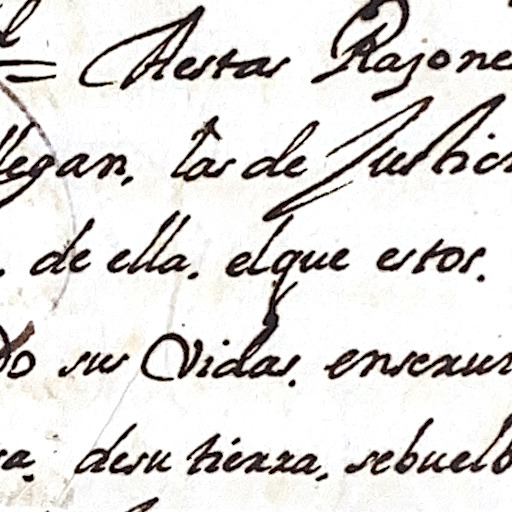 = Aestas Razone
llegan, las de Justici
. de ella. elque estos.
do sus Vidas. ensexur
sa. desu tiexxa, sebuelb